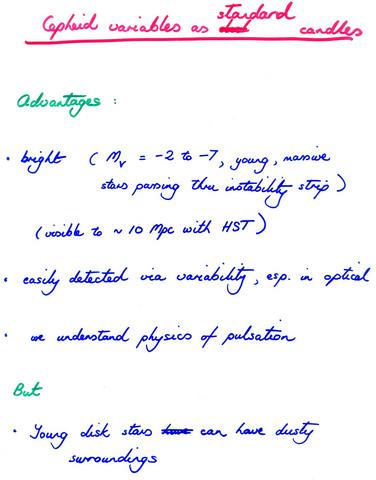 Cepheid variables as standard candles
Advantages :
• bright ( Mv = -2 to -7, young, massive
stars passing thru instability strip )
( visible to ~ 10 Mpc with HST )
• easily detected via variability, esp. in optical
• we understand physics of pulsation
But
• Young disk stars can have dusty
surroundings